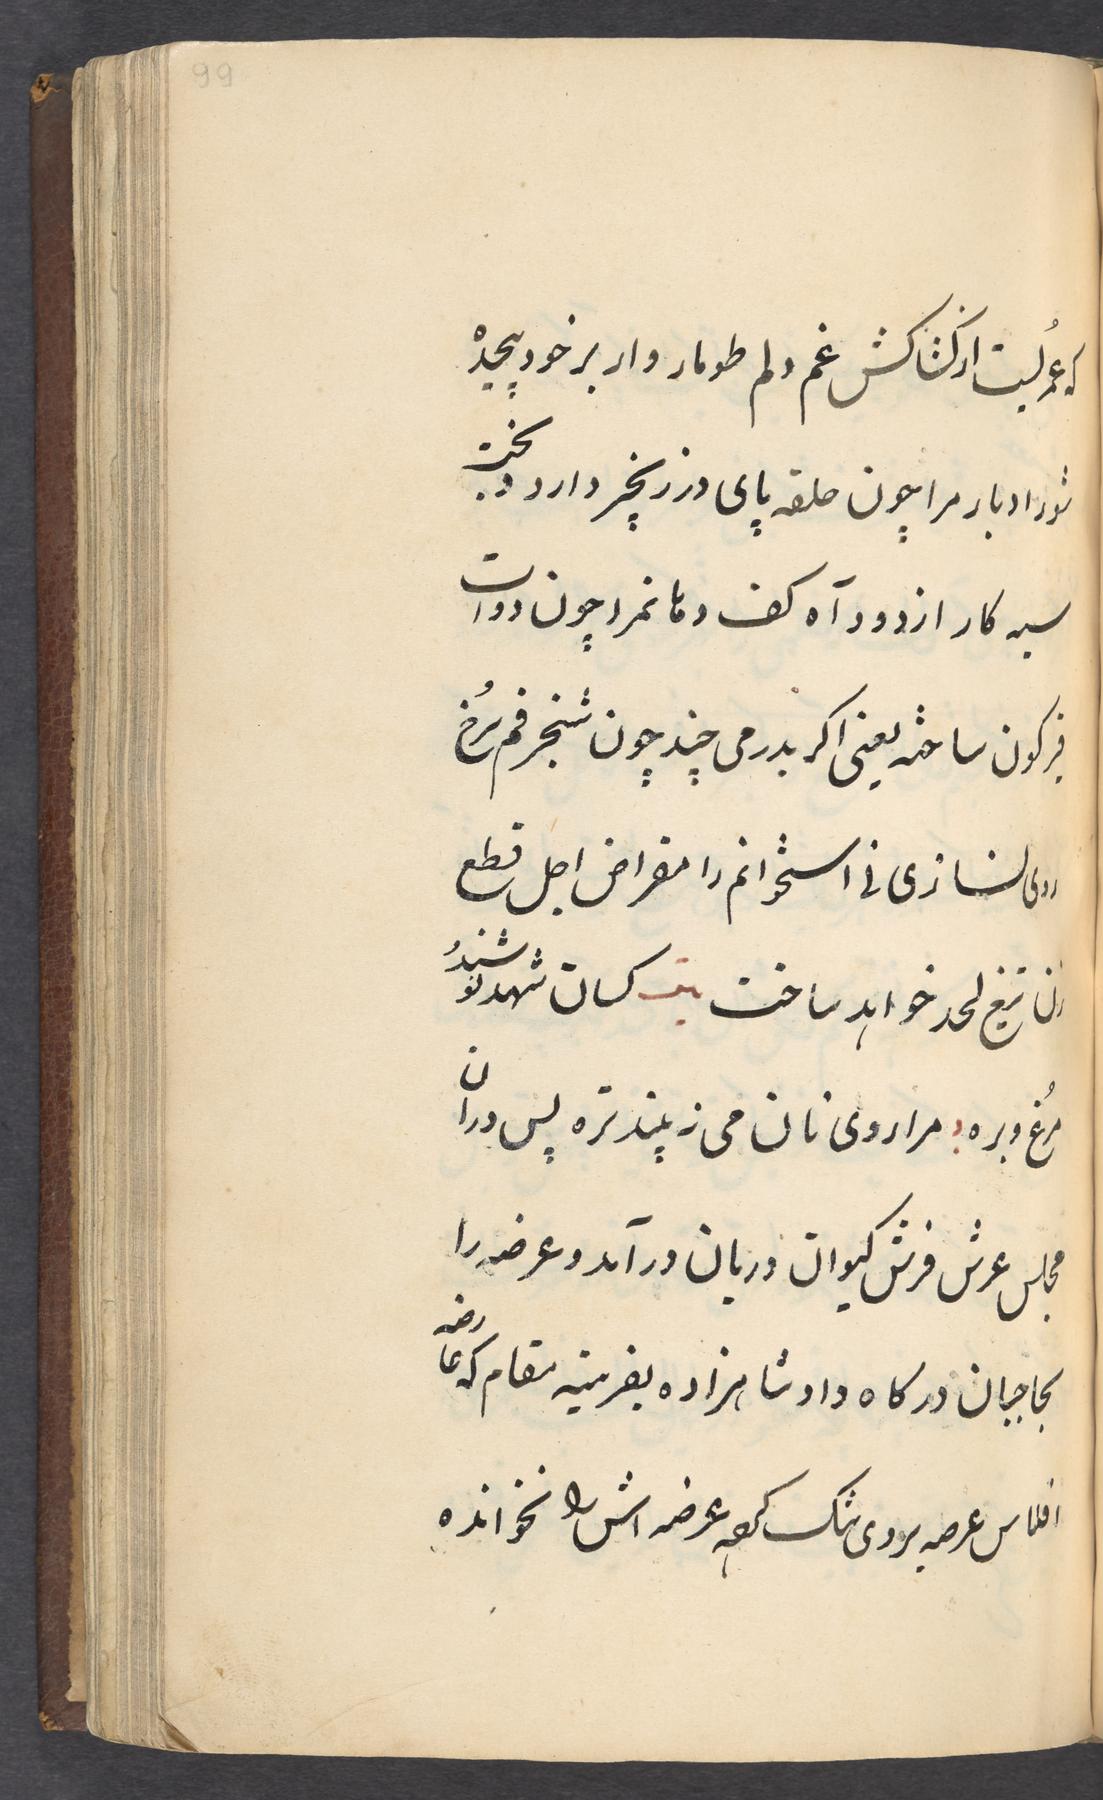 99
که عمریست از کشاکش غم دلم طومار وار بر خود پیچیده
شور ادبار مرا چون حلقه پای در زنجیر دارد و بخت
سیه کار از دود آه کف دهانمرا چون دوات
قیرکون ساخته یعنی اکر بدرمی چند چون شنجرفم سرخ
روی نسازی نی استخوانم را مقراض اجل قطع
زن تیغ لحد خواهد ساخت بیت کسان شهد نوشند و
مرغ و بره مرا روی نان می نه بیند تره پس دران
مجلس عرش فرش کیوان دربان درآمد و عرضه را
بحاجبان درکاه داد شاهزاده بقرینه مقام که عارضه
افلاس عرصه بروی تنک کرده عرضه اش را نخوانده